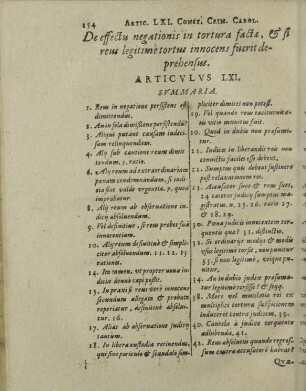 154 ARTIC. LXI. CONST. CRIM. CAROL.
De effectu negationis in tortura factæ, & si
reus legitimè tortus innocens fuerit de-
prehensus.
ARTICVLVS LXI.
SVMMARIA.
1. Reus in negatione persistens est
dimittendus.
2. An in sola dimissione persistendum
3. Aliqui putant causam indeci-
sam relinquendam.
4. Alij sub cautione reum dimit-
tendum, 5. ratio.
6. Alij reum ad extraordinariam
pœnam condemnandum, si indi-
cia sint valde urgentia, 7. quod
improbatur.
8. Alij reum ab observatione in-
dicij absolvendum.
9. Vel definitivè, si reus probet suā
innocentiam.
10. Alij reum definitivè & simpli-
citer absolvendum. 11. 12. 13.
rationes.
14. Imò tamen, ut propter nova in-
dicia denuò capi possit.
15. In praxi si reus verè innocens
secundum allegata & probata
reperiatur, definitivè absolvi-
tur. 16.
17. Alias ab observatione judicij
tantum.
18. In libera custodia retinendus,
qui sine periculo & scandalo sim-
pliciter dimitti non potest.
19. Vel quando reus
vitio notatus sit.
20. Quod in dubio non præsumi-
tur.
21. Iudex in liberandis reis non
convictis facilis esse debeat.
22. Sumptus quis debeat sustinere
post relaxationem rei.
23. Accusator suos & reus suos,
24. causos judicij sumptus, n. 25.
magistratus, n. 26. ratio 27.
& 28. 29.
30. Pœna judicis innocentem tor-
quentis quæ? 31. distinctus.
32. Si ordinarijs medijs & modis
legitimè torsit, non punitur,
33. si non legitimè, vtique
punitur.
34. An in dubio judex præsuma-
tur legitimè torsisse? & seqq.
38. Mors vel mutilatio rei ex
multiplici tortura suspicionem
inducit contra judicem. 39.
40. Cautela à judice torquente
adhibenda, 41.
42. Reus absolvens quando repræsen-
sum contra accusatorem habeat
Quæ